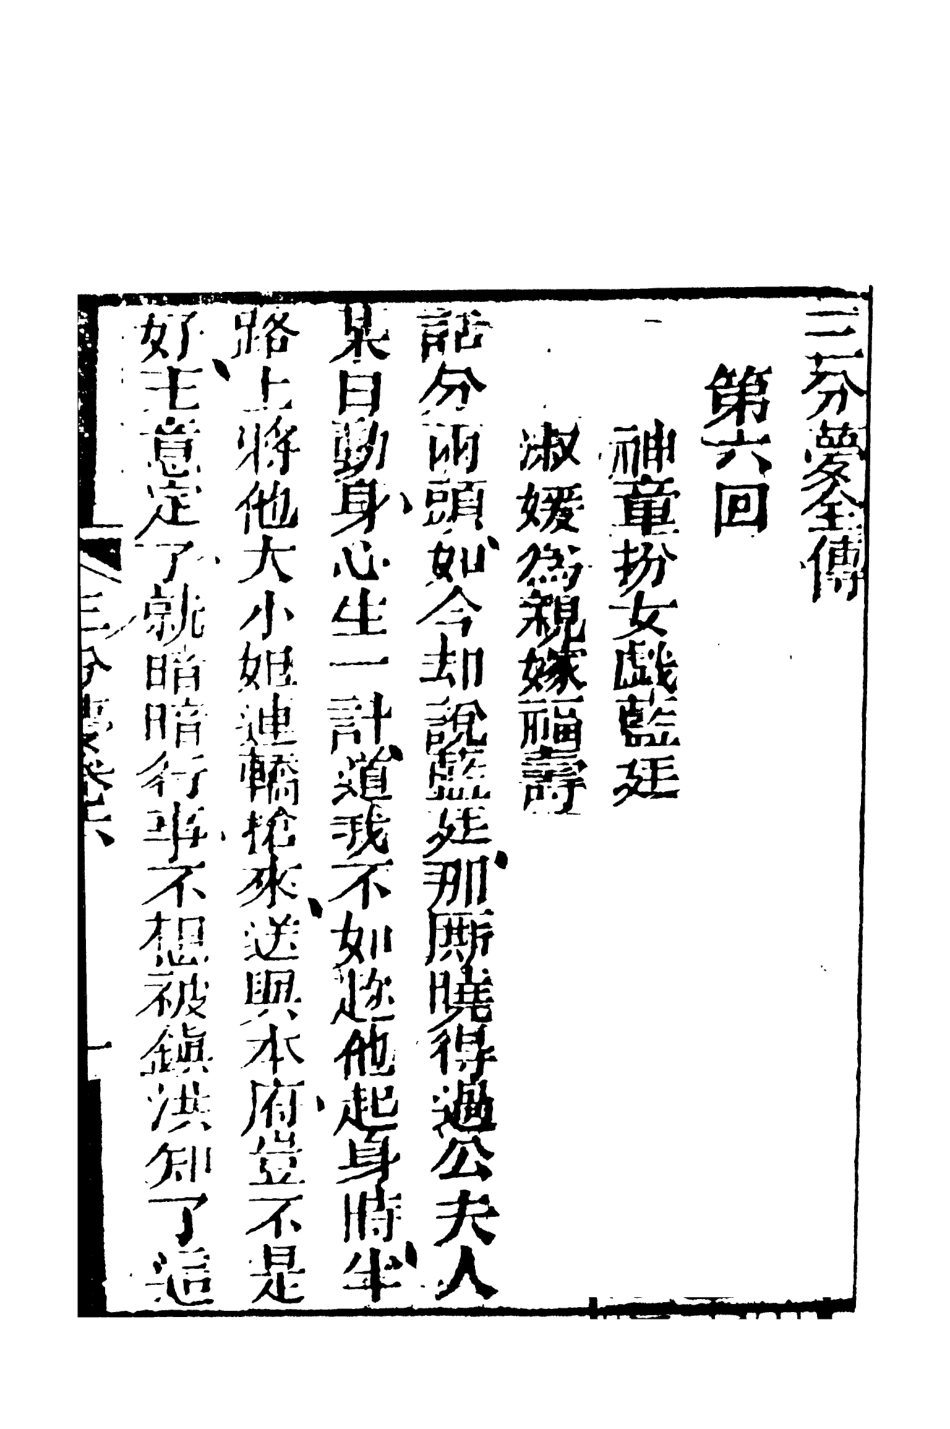 三分夢全傳
第六回
神童扮女戲藍廷
淑媛為親嫁福壽
話分兩頭如今却說藍廷那厮曉得過公夫人
某日動身心生一計道我不如趂他起身時半
路上將他大小姐連轎搶來送與本府豈不是
好主意定了就暗暗行事不想被鎮洪知了這
三分夢卷六
一